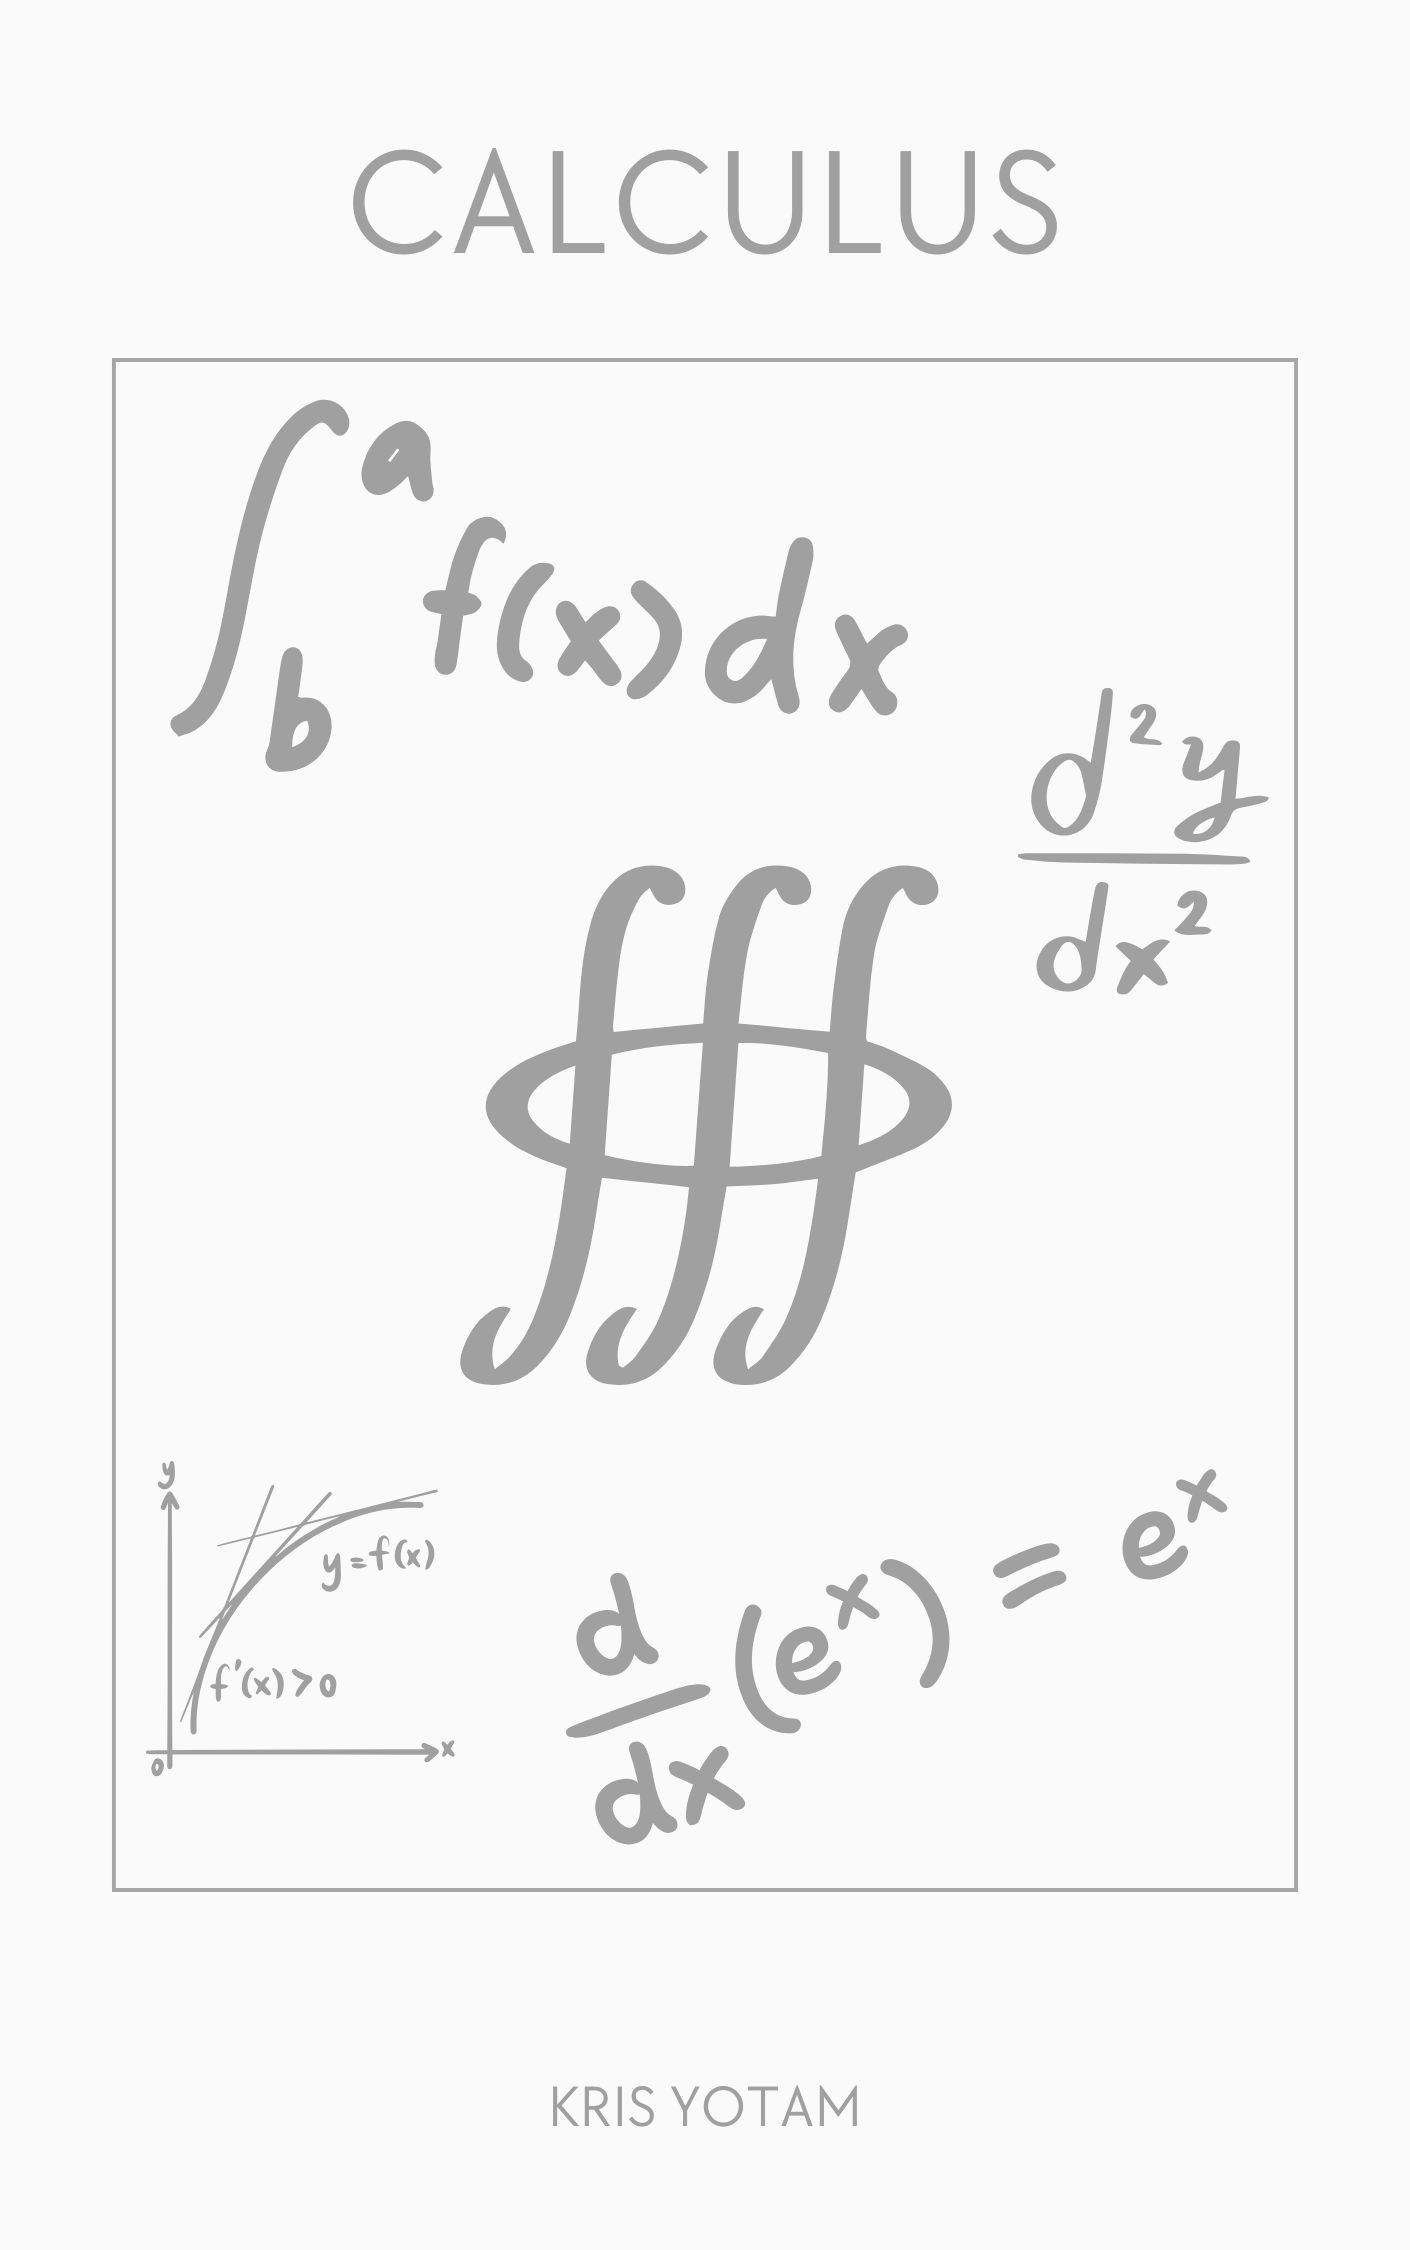 CALCULUS
∫ₐᵇ f(x)dx
d²y
dx²
∰
y
y=f(x)
f'(x)>0
0 x
d/dx (eˣ) = eˣ
KRIS YOTAM